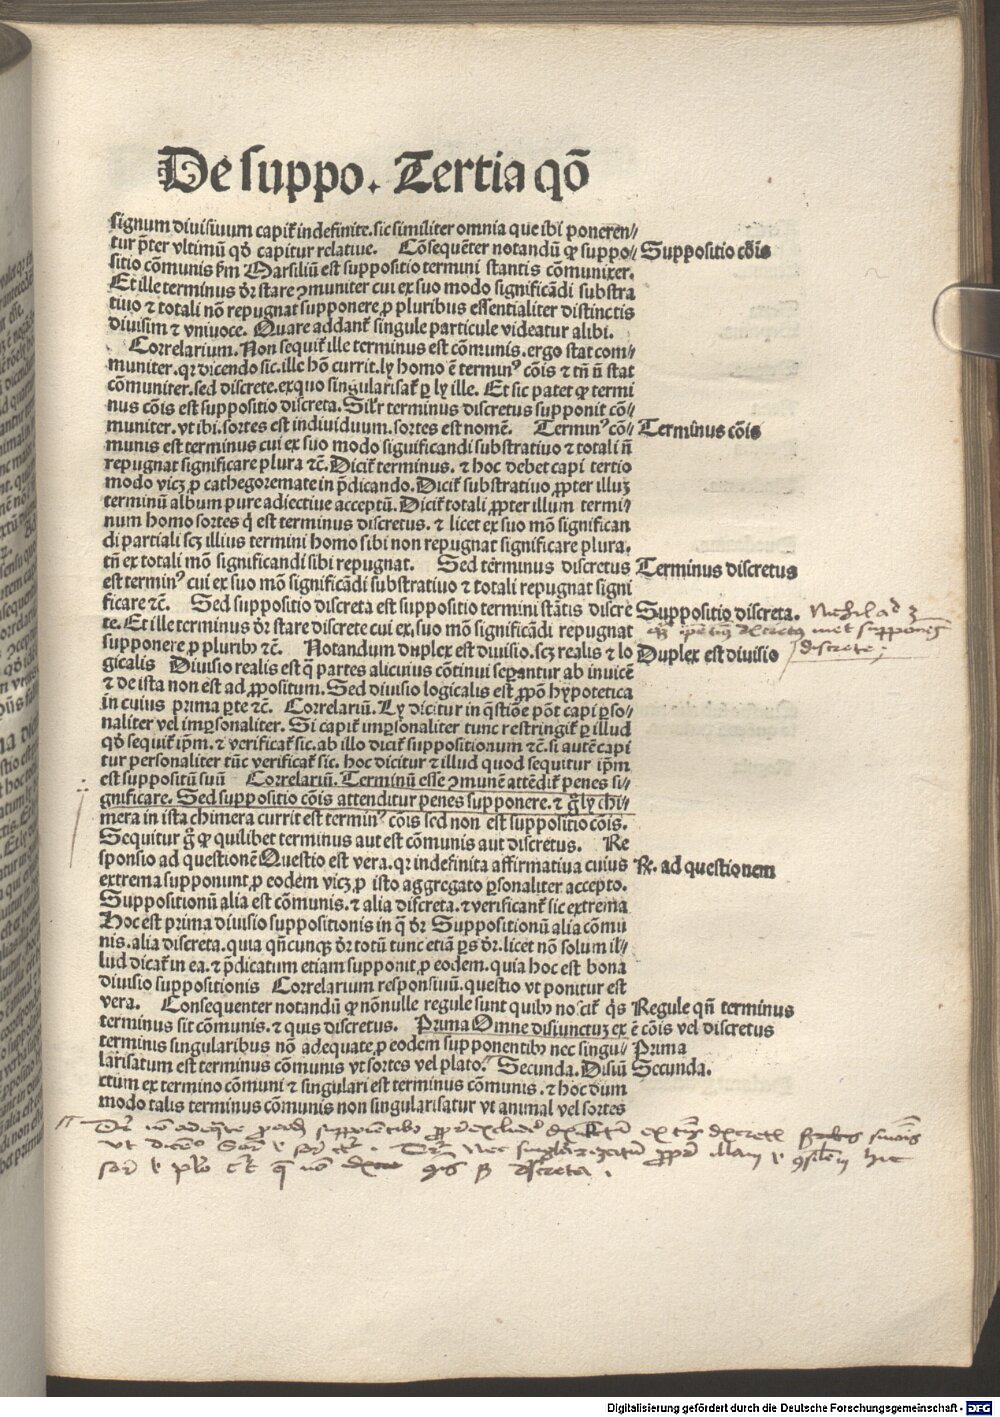 De suppo. Tertia qō
signum divisiuum capit̄ indefinite. sic similiter omnia que ibi poneren/
tur p̄ter vltimū qd̄ capitur relatiue. Cōsequēter notandū ꝙ suppo/
Suppositio cōis
sitio cōmunis ẜm Marsiliū est suppositio termini stantis cōmuniter.
Et ille terminus dr̄ stare ꝯmuniter cui ex suo modo significādi substra
tiuo ⁊ totali nō repugnat supponere ꝓ pluribus essentialiter distinctis
diuisim ⁊ vniuoce. Quare addant̄ singule particule videatur alibi.
Correlarium. Non sequit̄ ille terminus est cōmunis. ergo stat com/
muniter. qr dicendo sic. ille hō currit. ly homo ē terminꝰ cōis ⁊ tn̄ ū stat
cōmuniter. sed discrete. ex quo singularisat̄ ꝑ ly ille. Et sic patet ꝙ termi
nus cōis est suppositio discreta. Silr̄ terminus discretus supponit cō/
muniter. vt ibi. sortes est individuum. sortes est nomē. Terminꝰ cō/
Terminus cōis
munis est terminus cui ex suo modo significandi substratiuo ⁊ totali n̄
repugnat significare plura ⁊c̄. Dicit̄ terminus. ⁊ hoc debet capi tertio
modo vicꝫ ꝓ cathegoremate in p̄dicando. Dicit̄ substratiuo ꝓpter illuꝫ
terminū album pure adiectiue acceptū. Dicit̄ totali ꝓpter illum termi/
num homo sortes q̇ est terminus discretus. ⁊ licet ex suo mō significan
di partiali scꝫ illius termini homo sibi non repugnat significare plura.
tn̄ ex totali mō significandi sibi repugnat. Sed terminus discretus
Terminus discretus
est terminꝰ cui ex suo mō significādi substratiuo ⁊ totali repugnat signi
ficare ⁊c̄. Sed suppositio discreta est suppositio termini stātis discre
Suppositio discreta.
te. Et ille terminus dr̄ stare discrete cui ex suo mō significādi repugnat
supponere ꝓ pluribꝰ ⁊c̄. Notandum duplex est diuisio. scꝫ realis ⁊ lo
Duplex est diuisio
discrete
gicalis Diuisio realis est q̄ partes alicuius cōtinui seꝑantur ab inuicē
⁊ de ista non est ad ꝓpositum. Sed diuisio logicalis est ꝓpō hypotetica
in cuius prima ꝑte ⁊c̄. Correlariū. Ly dicitur in q̄stiōe pōt capi ꝑso/
naliter vel imꝑsonaliter. Si capit̄ imꝑsonaliter tunc restringit̄ ꝑ illud
qd̄ sequit̄ ip̄m. ⁊ verificat̄ sic. ab illo dicit̄ suppositionum ⁊c̄. si autē capi
tur personaliter tūc verificat̄ sic. hoc dicitur ⁊ illud quod sequitur ip̄m
est suppositū suū Correlariū. Terminū esse ꝯmunē attēdit̄ penes si/
gnificare. Sed suppositio cōis attenditur penes supponere. ⁊ gr̄ ly chi/
mera in ista chimera currit est terminꝰ cōis sed non est suppositio cōis.
Sequitur gr̄ ꝙ quilibet terminus aut est cōmunis aut discretus. Re
sponsio ad questionē Questio est vera. qr indefinita affirmatiua cuius
R̄. ad questionem
extrema supponunt ꝓ eodem vicꝫ ꝓ isto aggregato ꝑsonaliter accepto.
Suppositionū alia est cōmunis. ⁊ alia discreta. ⁊ verificant̄ sic extrema
Hoc est prima diuisio suppositionis in q̄ dr̄ Suppositionū alia cōmu
nis. alia discreta. quia qn̄cunqꝫ dr̄ totū tunc etiā ꝑs dr̄. licet nō solum il/
lud dicat̄ in ea. ⁊ p̄dicatum etiam supponit ꝓ eodem. quia hoc est bona
diuisio suppositionis Correlarium responsiuū. questio vt ponitur est
vera. Consequenter notandū ꝙ nōnulle regule sunt quibꝰ noscit̄ q̇s
Regule qn̄ terminus
terminus sit cōmunis. ⁊ quis discretus. Prima Omne disiunctuꝫ ex
ē cōis vel discretus
terminis singularibus nō adequate ꝓ eodem supponentibꝰ nec singu/
Prima
larisatum est terminus cōmunis vt sortes vel plato. Secunda. Disiū
Secunda.
ctum ex termino cōmuni ⁊ singulari est terminus cōmunis. ⁊ hoc dum
modo talis terminus cōmunis non singularisatur vt animal vel sortes
Digitalisierung gefördert durch die Deutsche Forschungsgemeinschaft - DFG